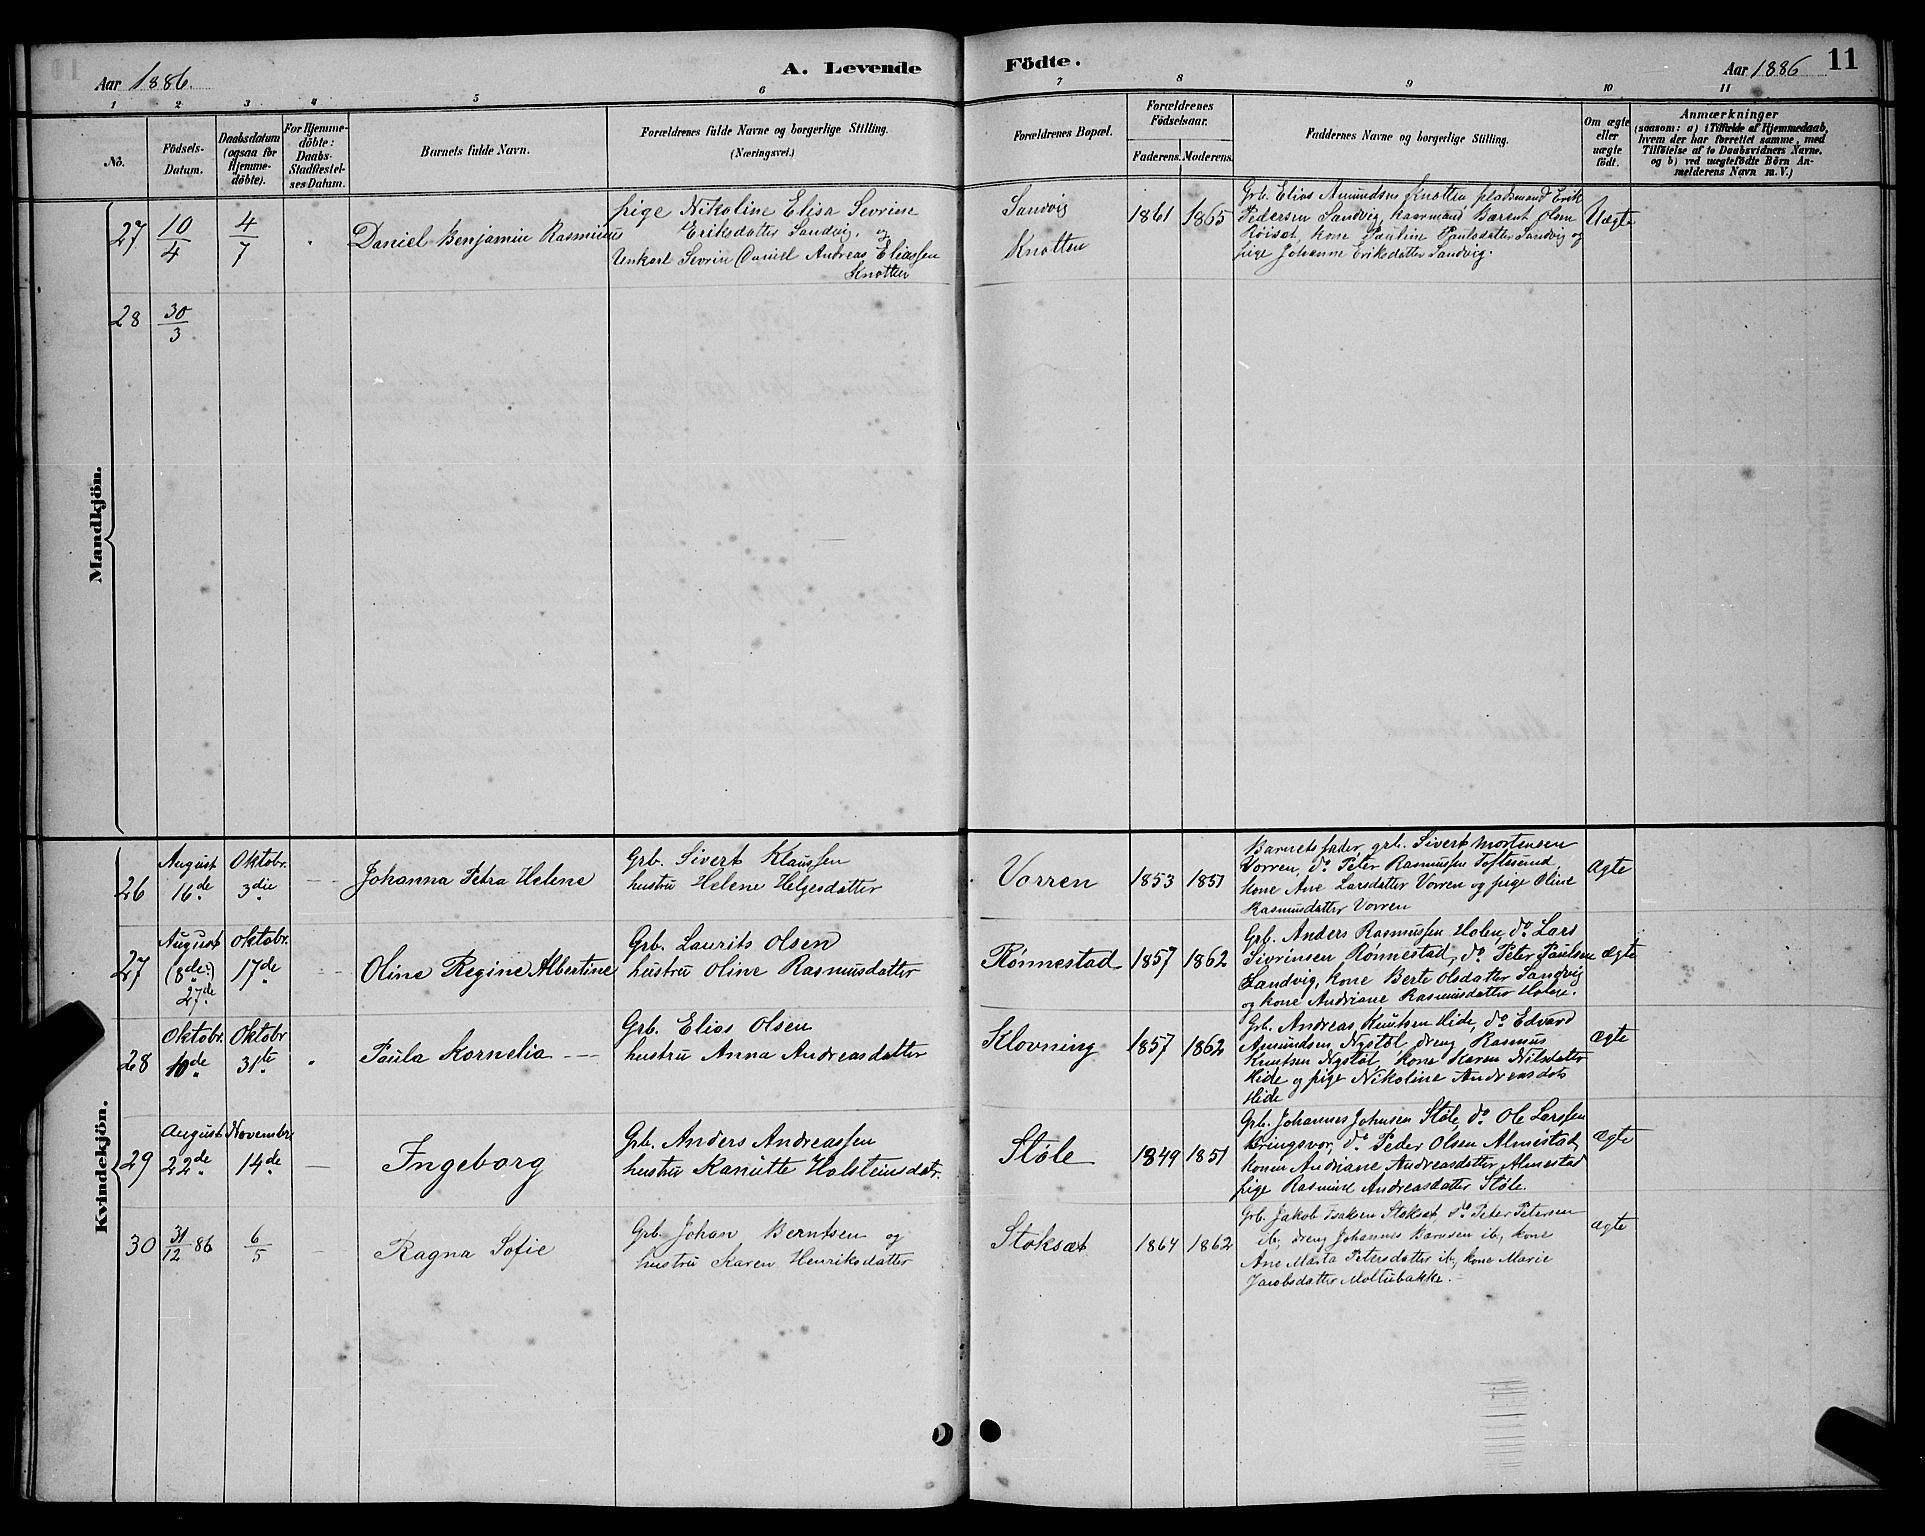 Aar 1886.
A. Levende Födte.
Aar 1886
11
1 2 3 4 5 6 7 8 9 10 11
No.
Födsels-
Datum.
Daabsdatum
(ogsaa for
Hjemme-
döbte).
For Hjemme-
döbte:
Daabs-
Stadfæstel-
ses Datum.
Barnets fulde Navn.
Forældrenes fulde Navne og borgerlige Stilling.
(Næringsvei.)
Forældrenes Bopæl.
Forældrenes
Födselsaar.
Faderens. Moderens.
Faddernes Navne og borgerlige Stilling.
Om ægte
eller
uægte
født.
Anmærkninger
(saasom: a) i Tilfælde af Hjemmedaab,
hvem der har forrettet samme, med
Tilföielse af to Daabsvidners Navne,
og b) ved uægtefödte Börn An-
melderens Navn m. V.)
Mandkjön.
27
10/4
4/7
Daniel Benjamin Rasminus
pige Nikoline Elisa Sevrine
Eriksdatter Sandvig, og
Unkarl Sevrin Daniel Andreas Eliassen
Knotten
Sandvig
Knotten
1861 1865
Grb. Elias Amundsen Knotten pladsmand Erik
Pedersen Sandvig, kaarmand Barent Olsen
Röiset, kone Pauline Paulsdatter Sandvig og
pige Johanne Eriksdatter Sandvig.
Uægte
28
30/3
Kvindekjön.
26
August
16de
Oktobr.
3die
Johanna Petra Helene
Grb. Sivert Klaussen
hustru Helene Helgesdatter
Vorren
1853 1851
Barnets fader, grb. Sivert Mortensen
Vorren, do Peter Rasmussen Toftesund,
kone Ane Larsdatter Vorren og pige Oline
Rasmusdatter Vorren
Ægte
27
August
(8de?)
27de
Oktobr.
17de
Oline Regine Albertine
Grb. Laurits Olsen
hustru Oline Rasmusdatter
Rönnestad
1857 1862
Grb. Anders Rasmussen Holen, do Lars
Sivrinsen Rønnestad, do Peter Paulsen
Sandvig, kone Berte Olsdatter Sandvig
og kone Andriane Rasmusdatter Holen.
ægte
28
Oktobr.
10de
Oktobr
31te
Paula Kornelia
Grb. Elias Olsen
hustru Anna Andreasdatter
Klovning
1857 1862
Grb. Andreas Knutsen Hide, do Edvard
Amundsen Nystøl, dreng Rasmus
Knutsen Nystøl, kone Karen Nilsdatter
Hide og pige Nikoline Andreasdatr
Hide
ægte
29
August
22de
Novembr.
14de
Ingeborg
Grb. Anders Andreassen
hustru Kanutte Holsteinsdatr.
Støle
1849 1851
Grb. Johannes Johnsen Støle, do Ole Larssen
Kringsvor, do Peder Olsen Almestad,
konen Andriane Andreasdatter Almestad
pige Rasmine Andreasdatter Støle.
ægte
30
31/12 86
6/5
Ragna Sofie
Grb. Johan Berntsen og
hustru Karen Henriksdatter
Stoksæt
1864 1862
Grb. Jakob Isaksen Stoksæt, do Peter Petersen
ib, dreng Johannes Barnsen ib, kone
Ane Marta Petersdatter ib, kone Marie
Jacobsdatter Moltubakke.
ægte